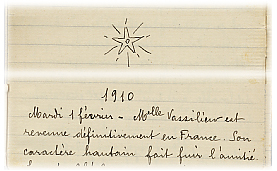 1910
Mardi 1 février – Melle Vassilieu est
revenue définitivement en France. Son
caractère hautain fait fuir l'amitié.